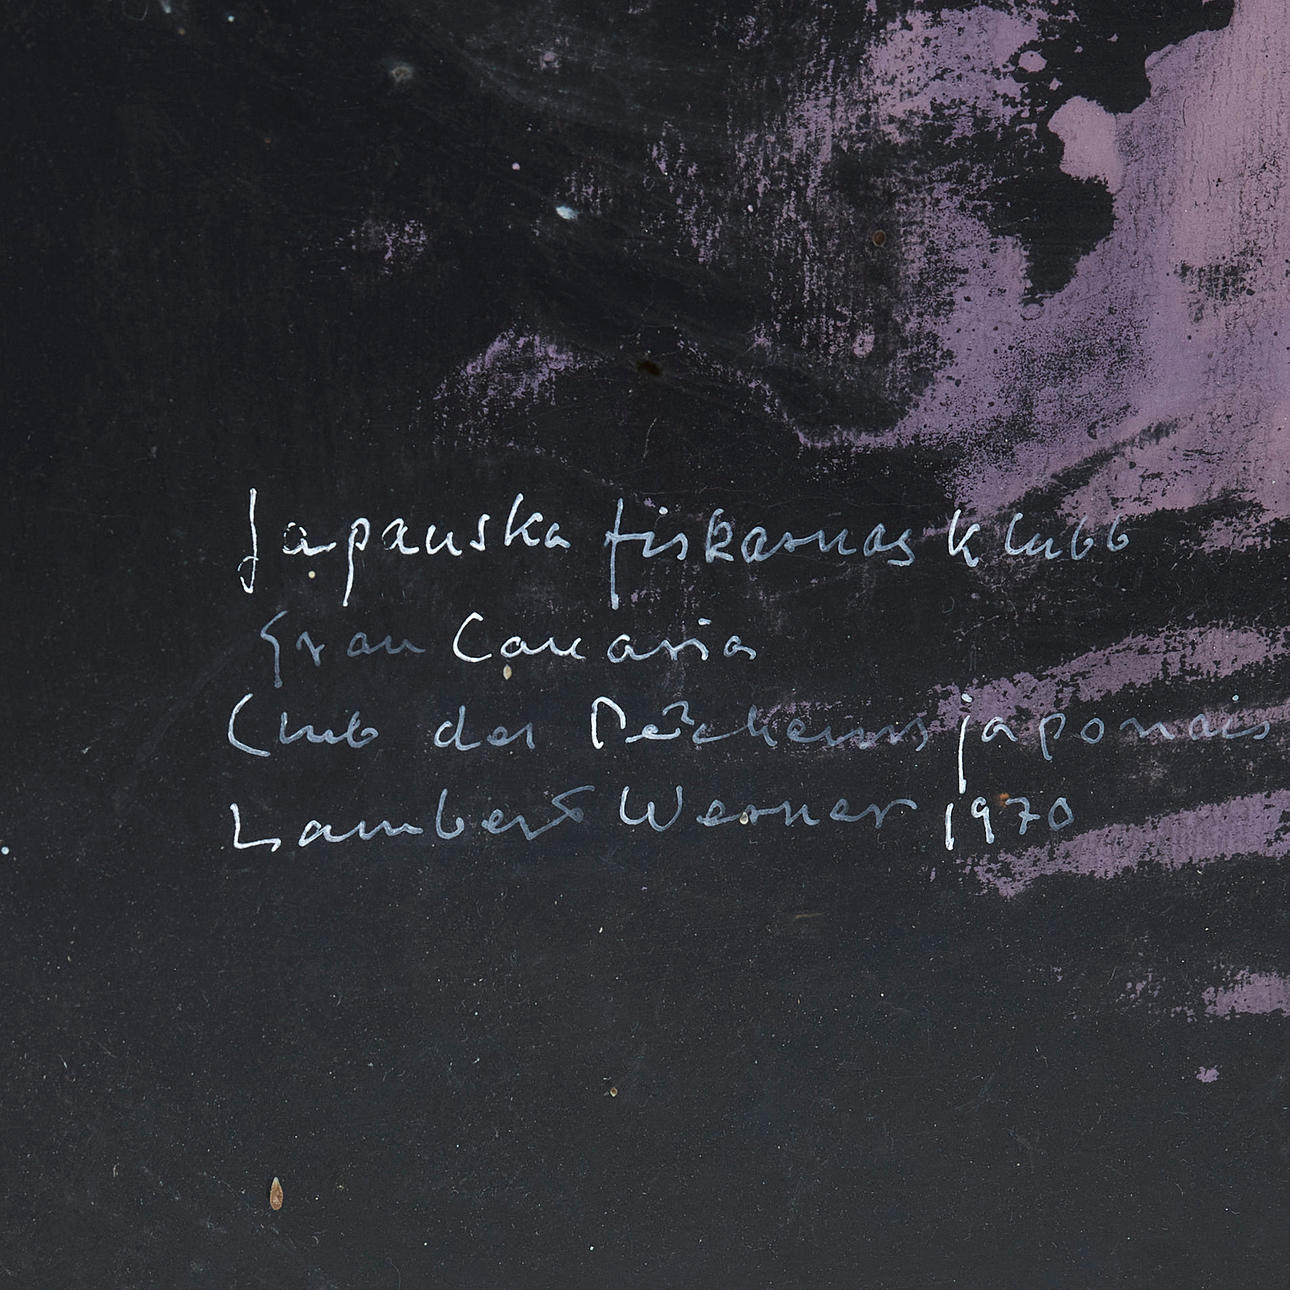 Japanska fiskarnas klubb
Gran Canaria
Club des Pêcheurs japonais
Lambert Werner 1970